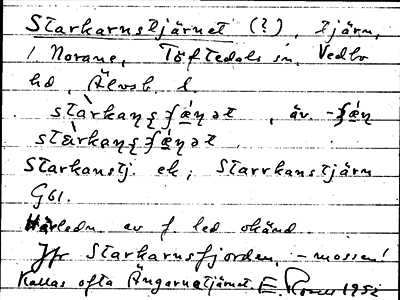 Starkarnstjärnet (?), tjärn,
i Norane, Töftedals sn, Vedbo
hd, Älvsb. l.
stàrkaɳʂʃæ̀ɳət, äv. -ʃæ̀ɳ
stæ̀rkaɳʂʃæ̀ɳət
Starkanstj. ek; Starrkanstjärn
G61.
Härledn. av f. led okänd.
Jfr Starkarnsfjorden, -mossen!
Kallas ofta Ängarnatjärnet. E. 1952